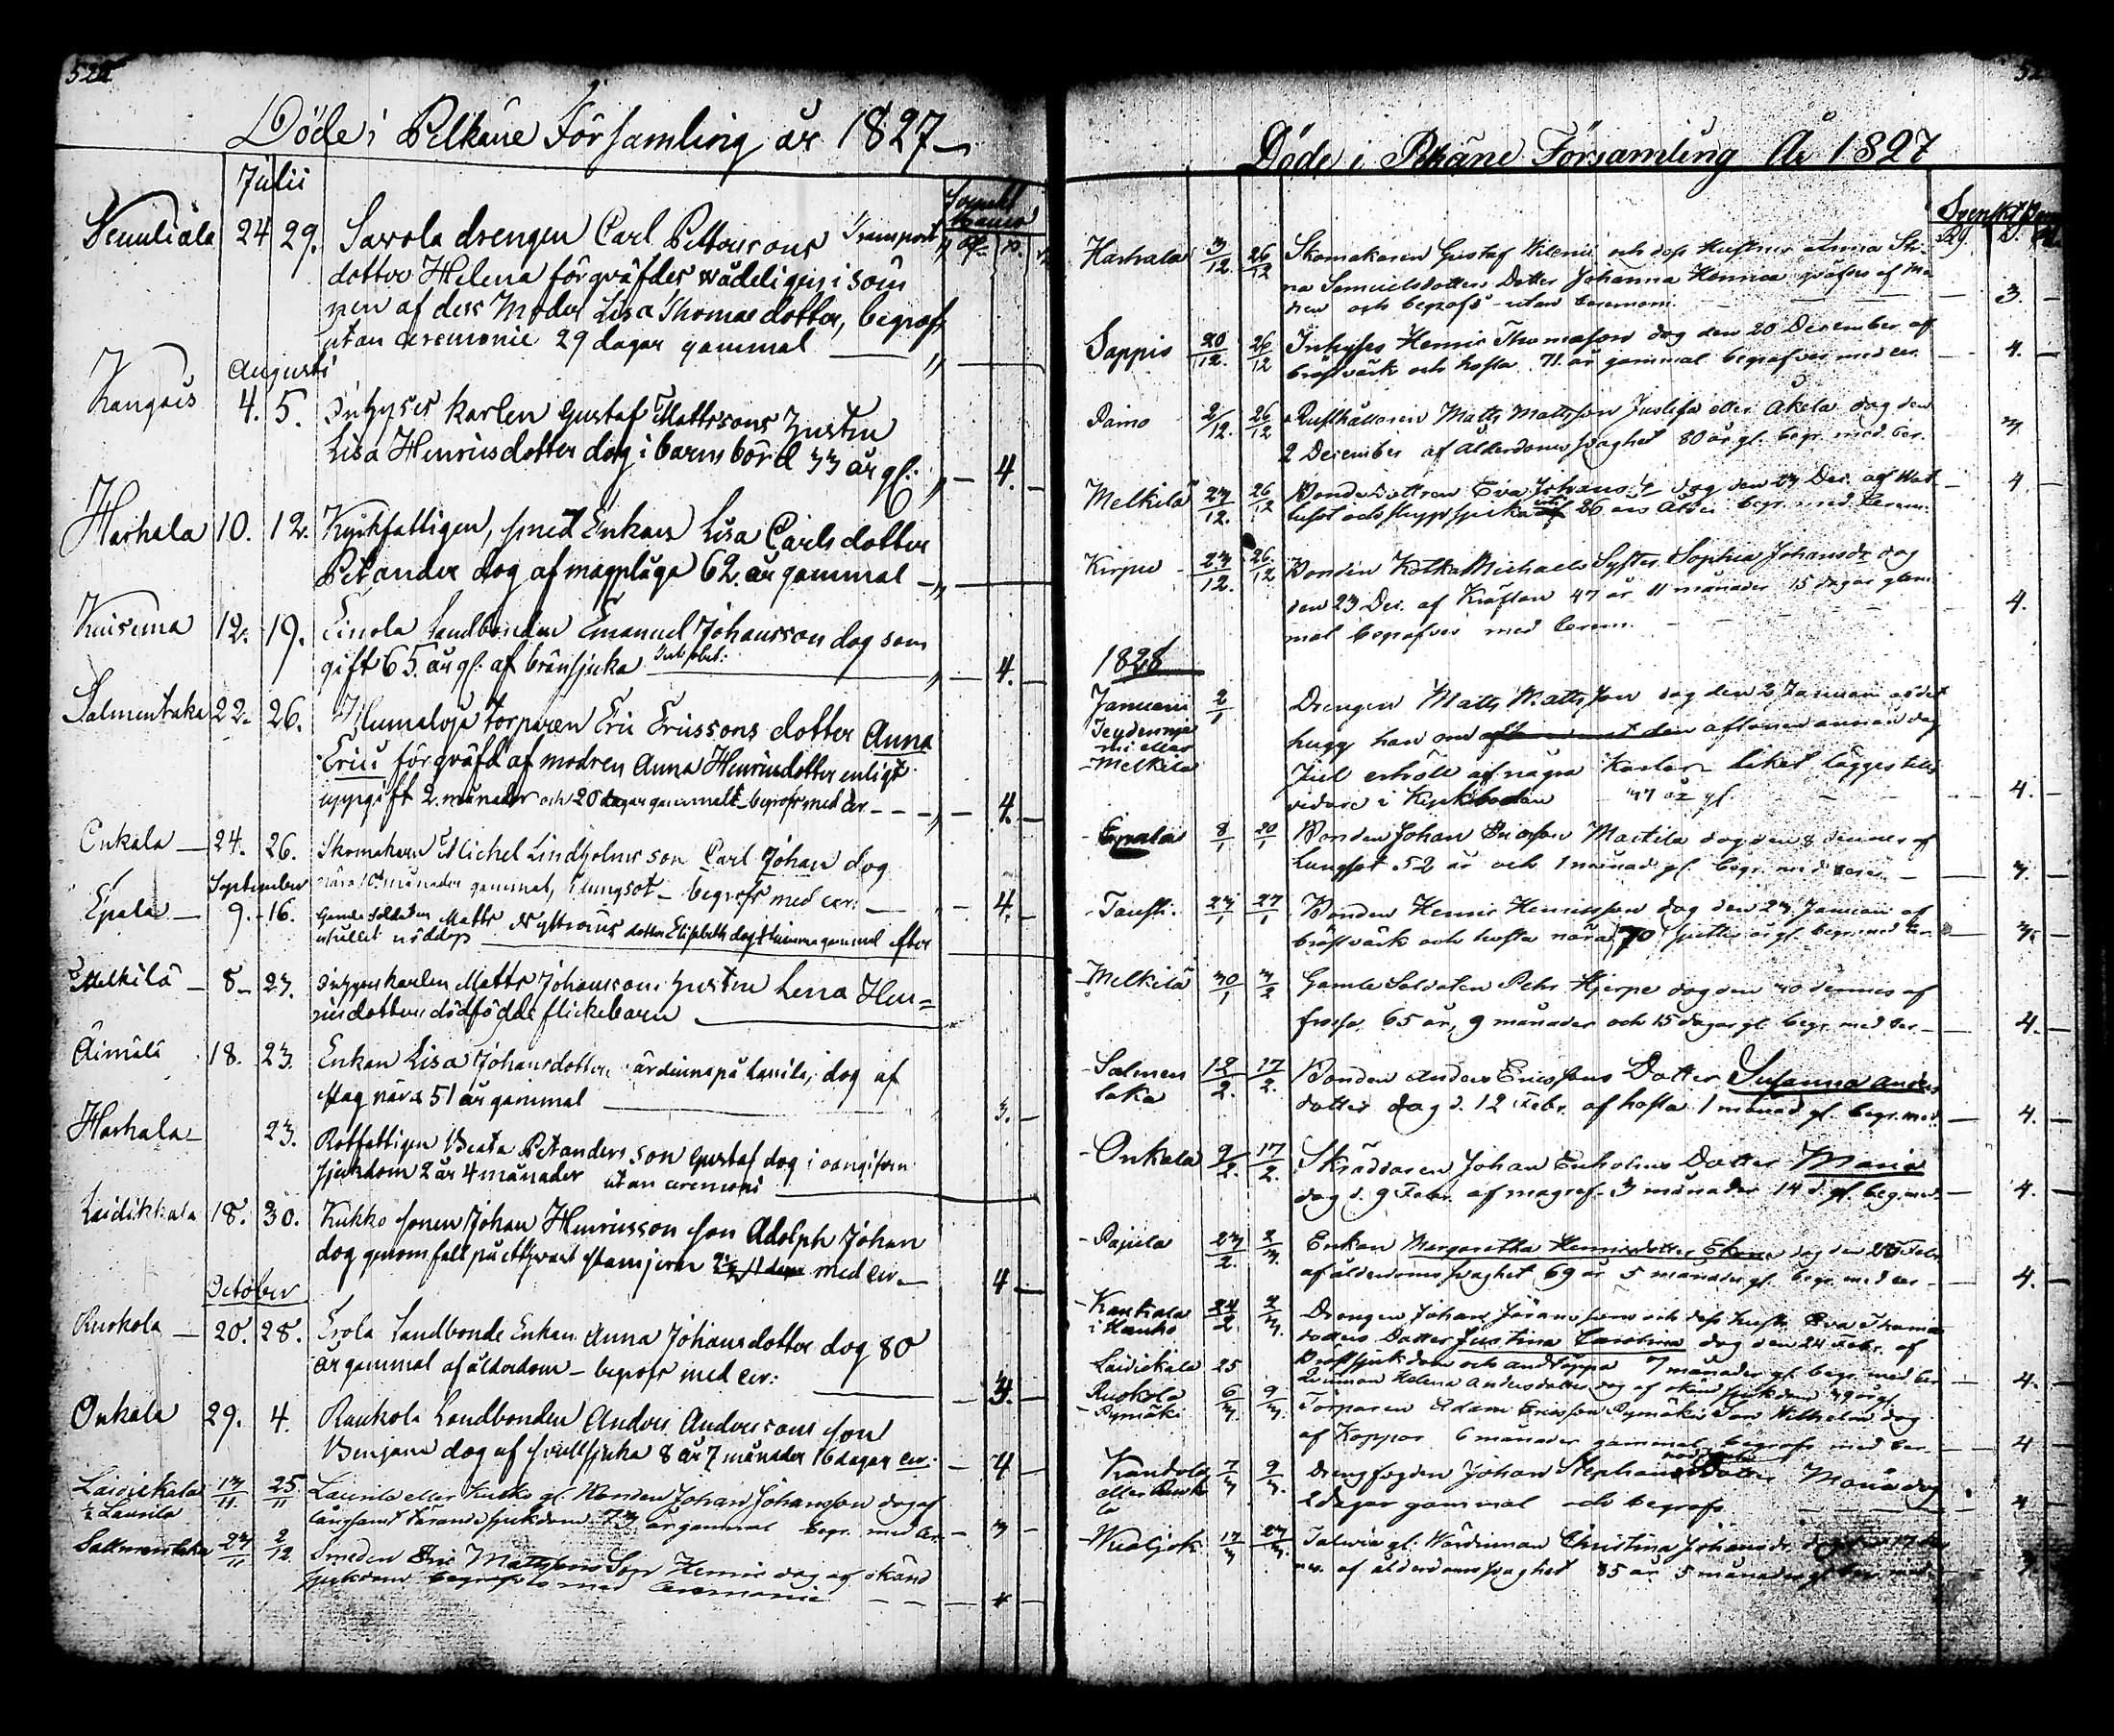 524
Döde i Pelkäne Församling år 1827
Julii
Svenskt Banco
Transport
24 29. Savola drengen Carl Pettersons
dotter Helena förqväfdes wådeligen i söm
nen af dess Moder Lisa Thomasdotter, begrofs
utan ceremonie 29 dagar gammal
Augusti
4. 5. Inhyses karlen Gustaf Mattssons hustru
Lisa Henricsdotter dog i barnsbörd 33 år gl: 4.
Harhala 10. 12. Kyrkfattigen, smed Enkan Lisa Carlsdotter
Petander dog af magplåga 62. år gammal
12. 19. Landbonden Emanuel Johansson dog som
gift 65. år gl: af brännsjuka 4.
Salmentaka 22. 26. Torparen Eric Ericssons dotter Anna
Erici förqväfd af modren Anna Henricsdotter enligt
uppgift 2. månader och 20 dagar gammalt begrofs med cer 4.
Onkala 24. 26. Skomakaren Michel Lindholms son Carl Johan dog
månader gammal, lungsot begrofs med cer: 4.
September
Epala 9. 16. Gamla Soldaten Matts dotter Elisabeth dog 1 timma gammal efter
nöddop
Melkilä 8 23. Inhyses karlen Matts Johanssons hustru Lena Hen=
ricsdotters dödfödde flickebarn
18. 23. Enkan Lisa Johansdotter dog af
slag nära 51 år gammal 3.
Harhala 23. Rotfattigen Beata Petanders son Gustaf dog i oangifven
sjukdom 2 år 4 månader utan ceremoni
Laidikkala 18. 30. Kukko sonen Johan Henricsson son Adolph Johan
dog genom fall på ett med cer. 4
October
Ruokola 20. 28. Erola Landbonde Enkan Anna Johansdotter dog 80
år gammal af ålderdom – begrofs med cer: 3.
Onkala 29. 4. Raukola Landbonden Anders Anderssons son
Benjam dog af svullsjuka 8 år 7 månader 16 dagar cer. 4
Laidickala 13/11 25/11 Laurila eller Kukko gl. Bonden Johan Johansson dog af
½ Laurila långsamt tärande sjukdom 73 år gammal begr. med cer. 3
Salmentaka 23/11 2/12 Smeden Eric Mattssons Son Henric dog af okänd
sjukdom begrofs med Ceremonie
Döde i Pelkäne Församling År 1827
Harhala 3/12. 26/12 Skomakaren Gustaf och dess Hustrus Anna Ste
na Samuelsdotters Dotter Johanna Henrica qväfdes af mo
dren och begrofs utan ceremoni. 3.
Sappio 20/12. 26/12 Inhyses Henric Thomasson dog den 20 December af
bröstvärk och hosta 71. år gammal begrofves med cer. 4.
2/12. 26/12 Rusthållaren Matts Mattsson Juslefa eller Äkelä dog den
2 December af Ålderdoms svaghet 80 år gl. begr. med cer. 3
Melkilä 23/12. 26/12 Bonde Dottren Eva Johansdr dog den 23 Dec. af Wat
tusot 86 års ålder begr. med Cerem. 4
23/12. 26/12 Bonden Kolka Michaels Syster Sophia Johansdr dog
den 23 Dec. af Kräftan 47 år 11 månader 15 dagar gam
mal begrofves med cerem. 4.
1828
Januarii 2/1 Drengen Matts Mattsson dog den 2 Januarii af det
hugg han om aftonen annan dag
Melkilä Jul erhöll af några Karlar liket lägges tills
vidare i Kyrkboden 47 år gl. 4.
Epala 8/1 20/1 Bonden Johan Ericsson Mattila dog den 8 dennes af
Lungsot 52 år och 1 månad gl. begr. med cerem. 3.
23/1 27/1 Bonden Henric Henricsson dog den 23 Januari af
bröstvärk och hosta nära 70 år gl. begr. med cer. 3.
Melkilä 30/1 3/2 Gamla Soldaten Pehr Hjerpe dog den 30 dennes af
frossa 65 år, 9 månader och 15 dagar gl. begr. med cer. 4.
Salmen 12/2. 17/2. Bonden Anders Ericssons Dotter Susanna Anders
taka dotter dog d. 12 Febr. af hosta 1 månad gl. begr. med. 4.
Onkala 9/2. 17/2. Skräddaren Johan Enholms Dotter Maria
dog d. 9 Febr. af magref. 3 månader 14 d. gl. begr. med 4.
Pajula 23/2. 2/3. Enkan Margaretha Henricsdotter dog den 23 Febr
af ålderdoms svaghet 69 år 5 månader gl. begr. med cer 4.
24/2. 2/3. Drengen Johan och dess hustr. Eva Thomas
dotters Dotter Justina Carolina dog den 24 Febr. af
bröstsjukdom och andtäppa 7 månader gl. begr. med cer 4.
Laidickala 25 Qvinnan Helena Andersdotter dog af okänd sjukdom 39 år gl.
Ruokola 6/3. 9/3. Torparen Adam Ericsson Rymäkis Son Wilhelm dog
Rymäki af Koppor 6 månader gammal begrofs med cer. 4
7/3 9/3. Drengfogden Johan Stephans Dotter Maria dog
2 dagar gammal och begrofs 4
17/3 23/3. gl. Wärdinnan Christina Johansdr dog den 17
af ålderdoms svaghet 85 år 5 månader gl. begr. med 3.